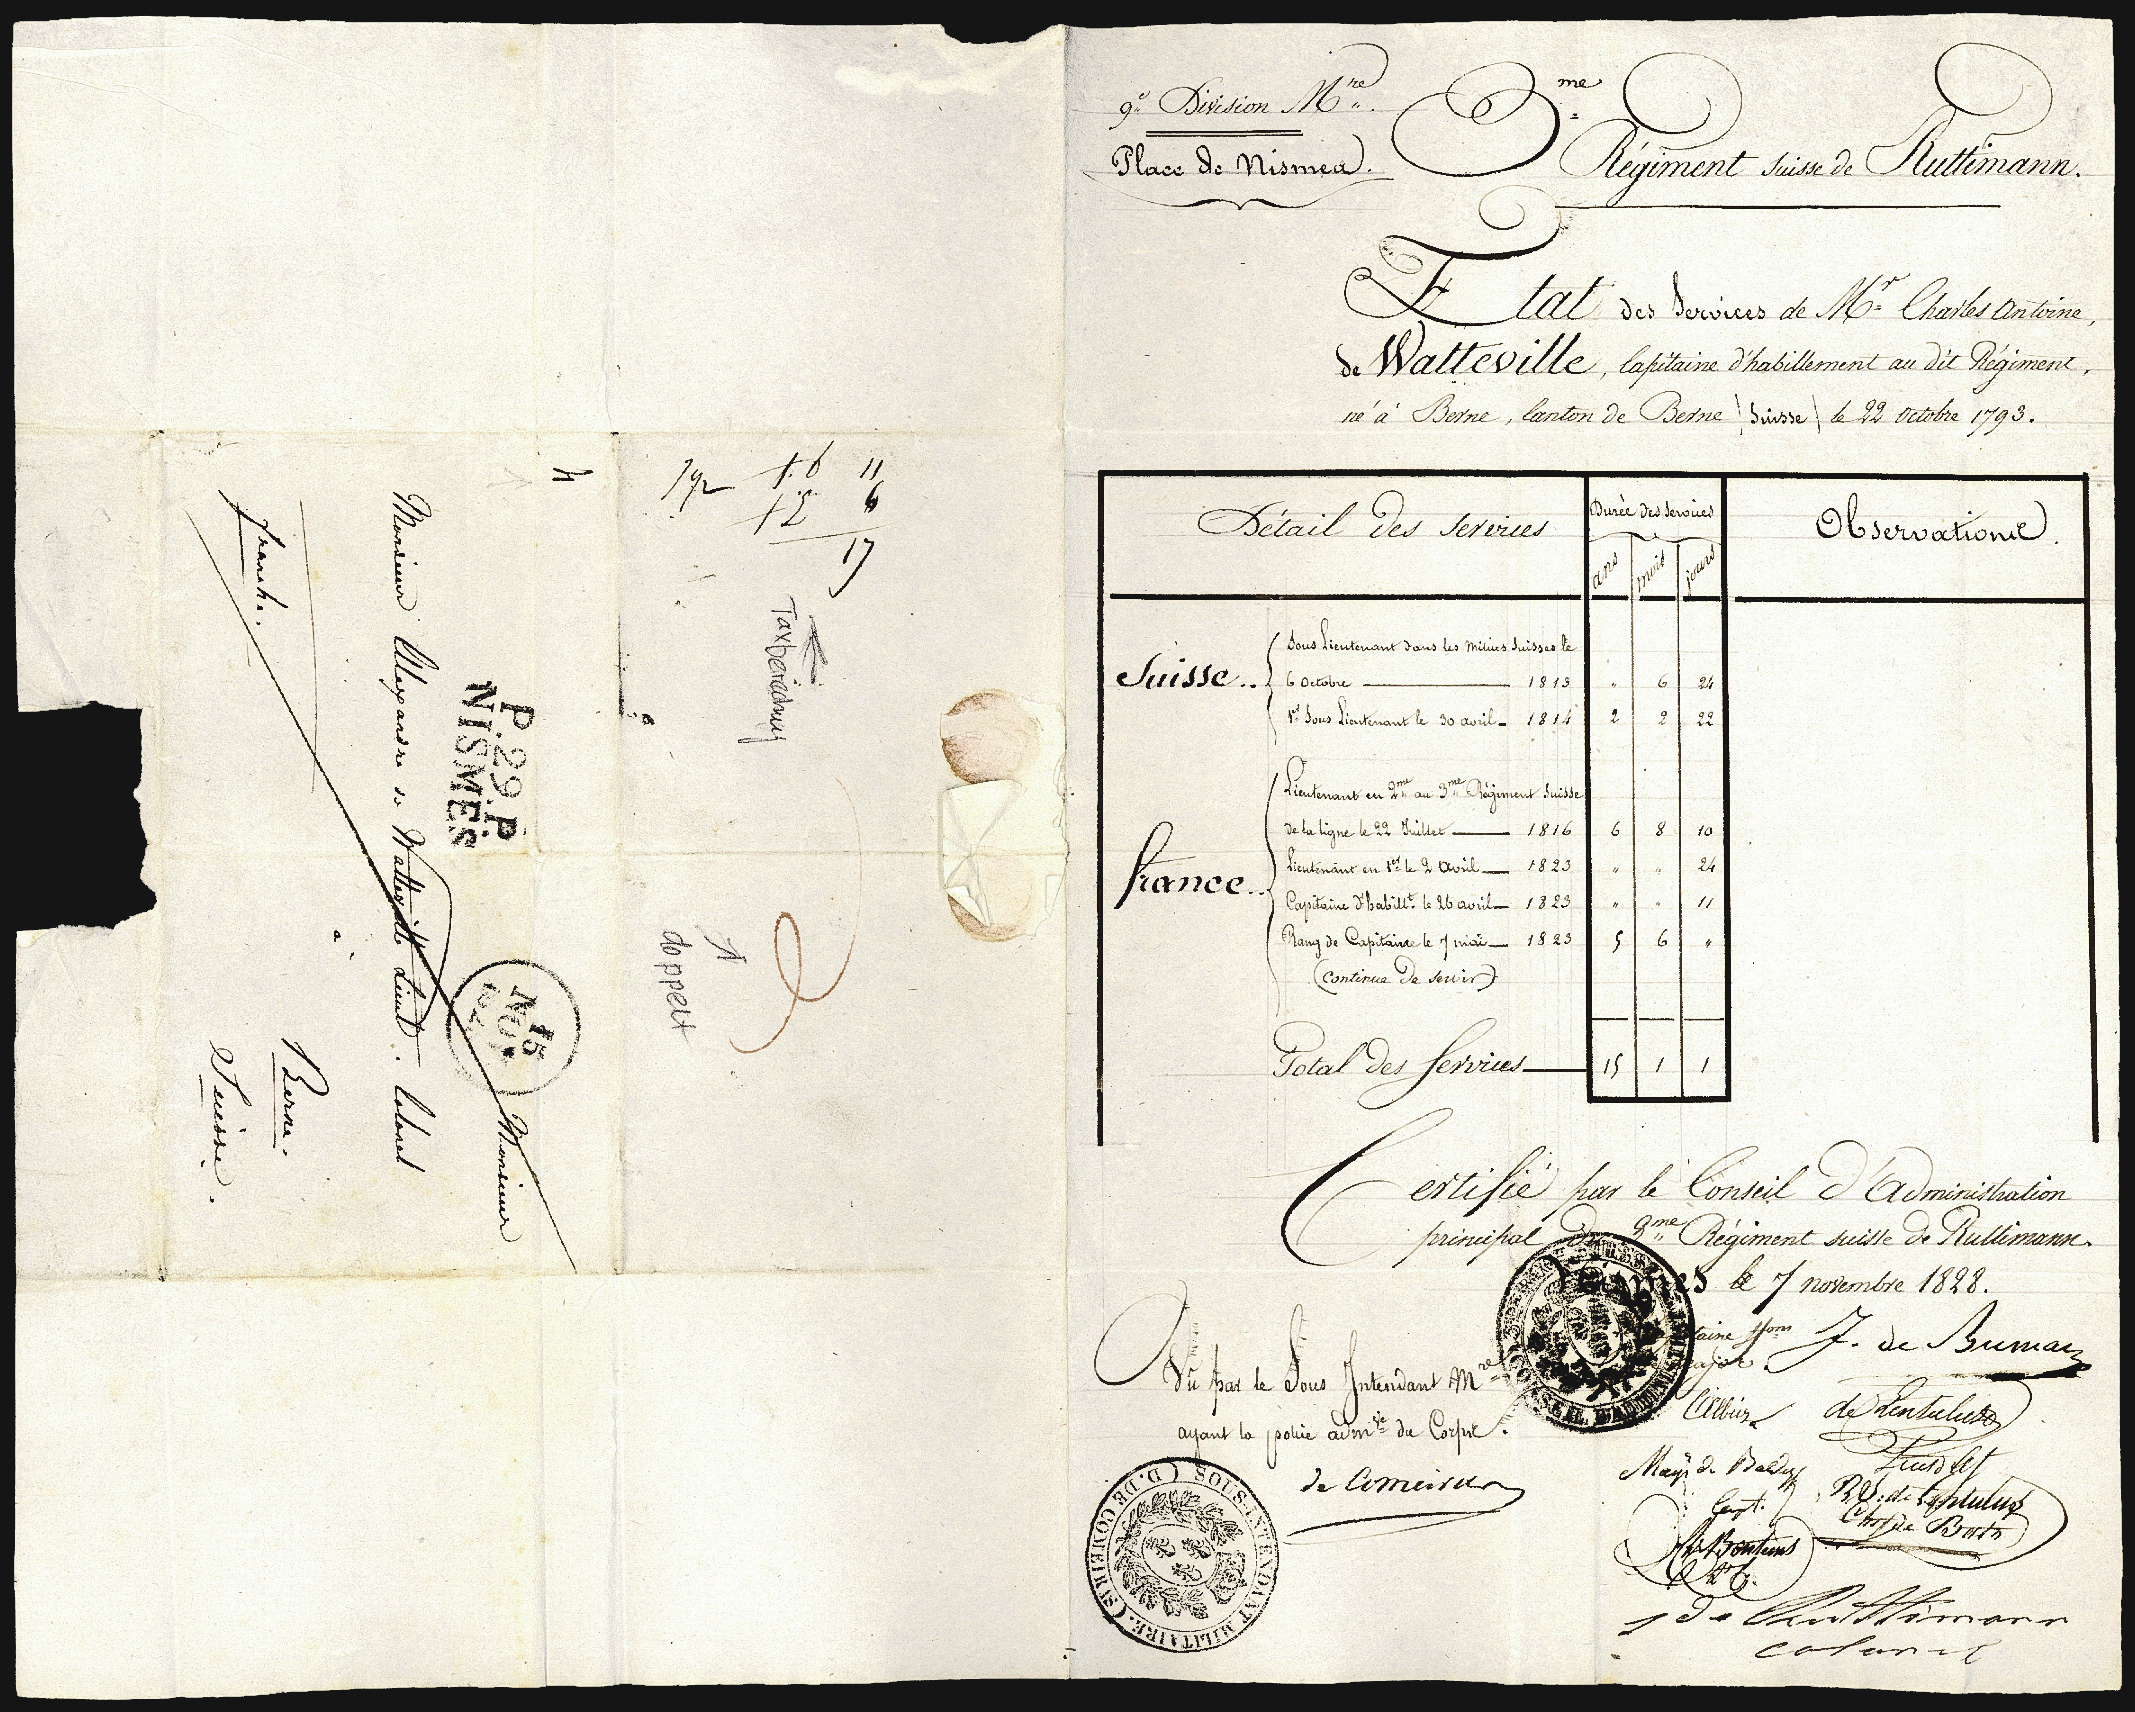 9e Division Mre.
Place de Nismes.
3me
Régiment Suisse de Ruttimann.
Etat des Services de Mr Charles Antoine,
de Watteville, Capitaine d'habillement au dit Régiment,
né à Berne, Canton de Berne (Suisse) le 22 octobre 1793.
Détail des Services
Durée des Services
ans mois jours
Observations.
Suisse..
Sous Lieutenant dans les milices Suisses le
6 Octobre 1813 " 6 24
1er Sous Lieutenant le 30 avril 1814 2 2 22
France..
Lieutenant en 2me au 3me Régiment Suisse
de la ligne le 22 Juillet 1816 6 8 10
Lieutenant en 1er le 2 Avril 1823 " " 24
Capitaine d'habillt. le 26 avril 1823 " " 11
Rang de Capitaine le 7 mai 1823 5 6 "
(Continue de servir)
Total des Services 15 1 1
Certifié par le Conseil d'Administration
principal du 3me Régiment suisse de Ruttimann.
le 7 novembre 1828.
J. de Buman
de Lentulus
May de
Capt.
de Ruttimann
colonel
Vu par le Sous Intendant Mre
ayant la police admve du Corps.
SOUS-INTENDANT MILITAIRE.
(D. DE COMEIRAS)
11
6
17
Taxberechnung
doppelt
4
P.29.P
NISMES
15
NOV.
Monsieur
Monsieur Alexandre de Watteville Lieut. Colonel
à
Berne.
Suisse.
franche.